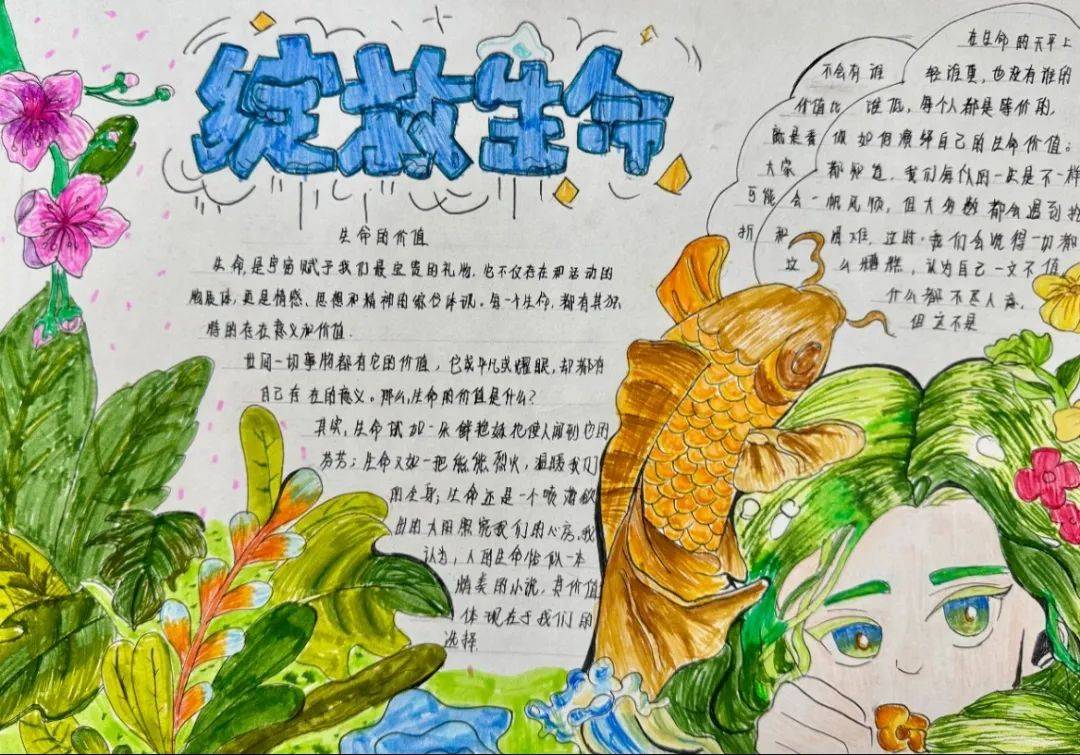 绽放生命
生命的价值
生命,是宇宙赋于我们最宝贵的礼物。它不仅存在和活动的
更是情感、思想和精神的综合体现。每一个生命,都有其独
特的存在意义和价值.
世间一切事物都有它的价值,它或平凡或耀眼,却都有
自己存在的意义。那么,生命的价值是什么?
其实,生命就如一朵鲜艳妹花使人闻到它的
芬芳;生命又如一把熊熊烈火,温暖我们
的全身;生命还是一个喷薄欲
出的太阳照亮我们的心房。我
认为,人的生命恰似一本
精美的小说,其价值
体现在于我们的
选择.
在生命的天平上
不会有谁 轻谁重,也没有谁的
价值比 谁低,每个人都是等价的,
就是看 你如何演绎自己的生命价值;
大家 都知道,我们每个人的一生是不一样
可能 会一帆风顺,但大多数都会遇到挫
折 和 困难,这时,我们会觉得一切都
这 么糟糕,认为自己一文不值
什么都不尽人意.
但这不是